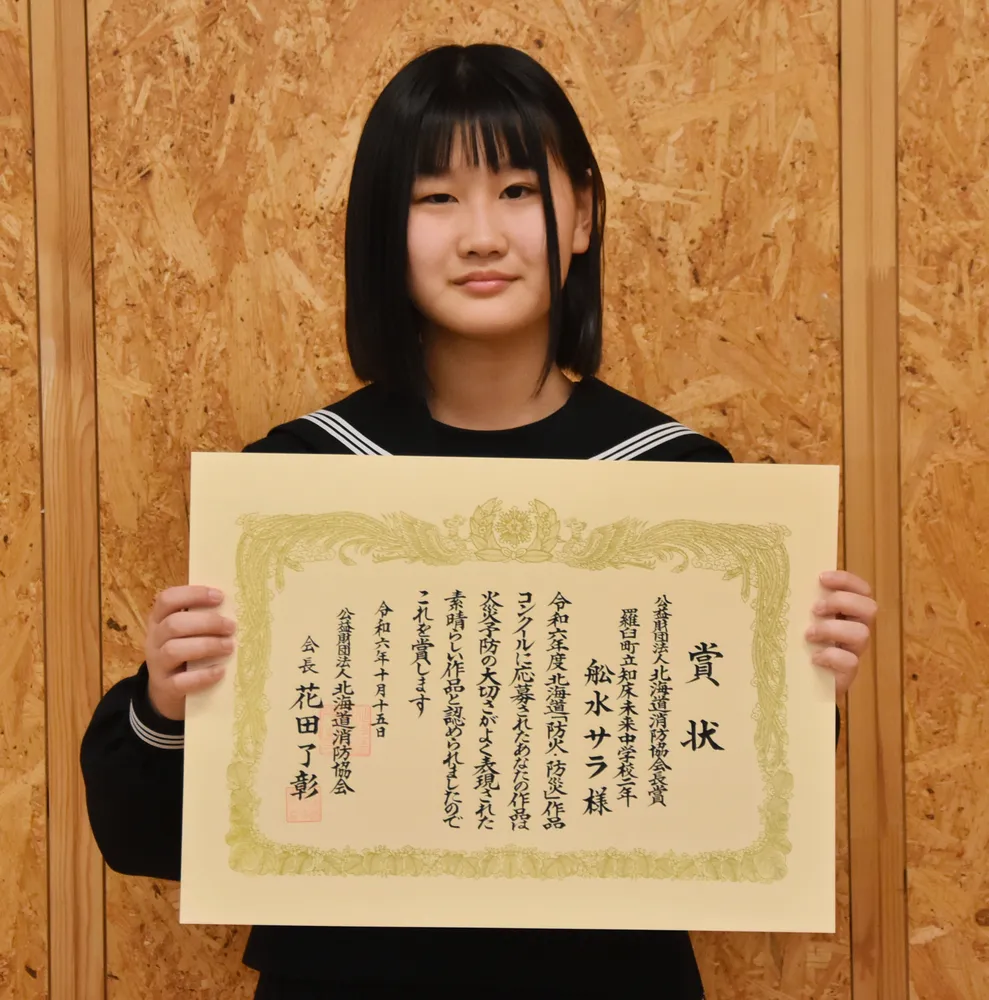 賞状
公益財団法人北海道消防協会長賞
羅臼町立知床未来中学校二年
舩水サラ様
令和六年度北海道「防火・防災」作品
コンクールに応募されたあなたの作品は
火災予防の大切さがよく表現された
素晴らしい作品と認められましたので
これを賞します
令和六年十月十五日
公益財団法人北海道消防協会
会長 花田了彰